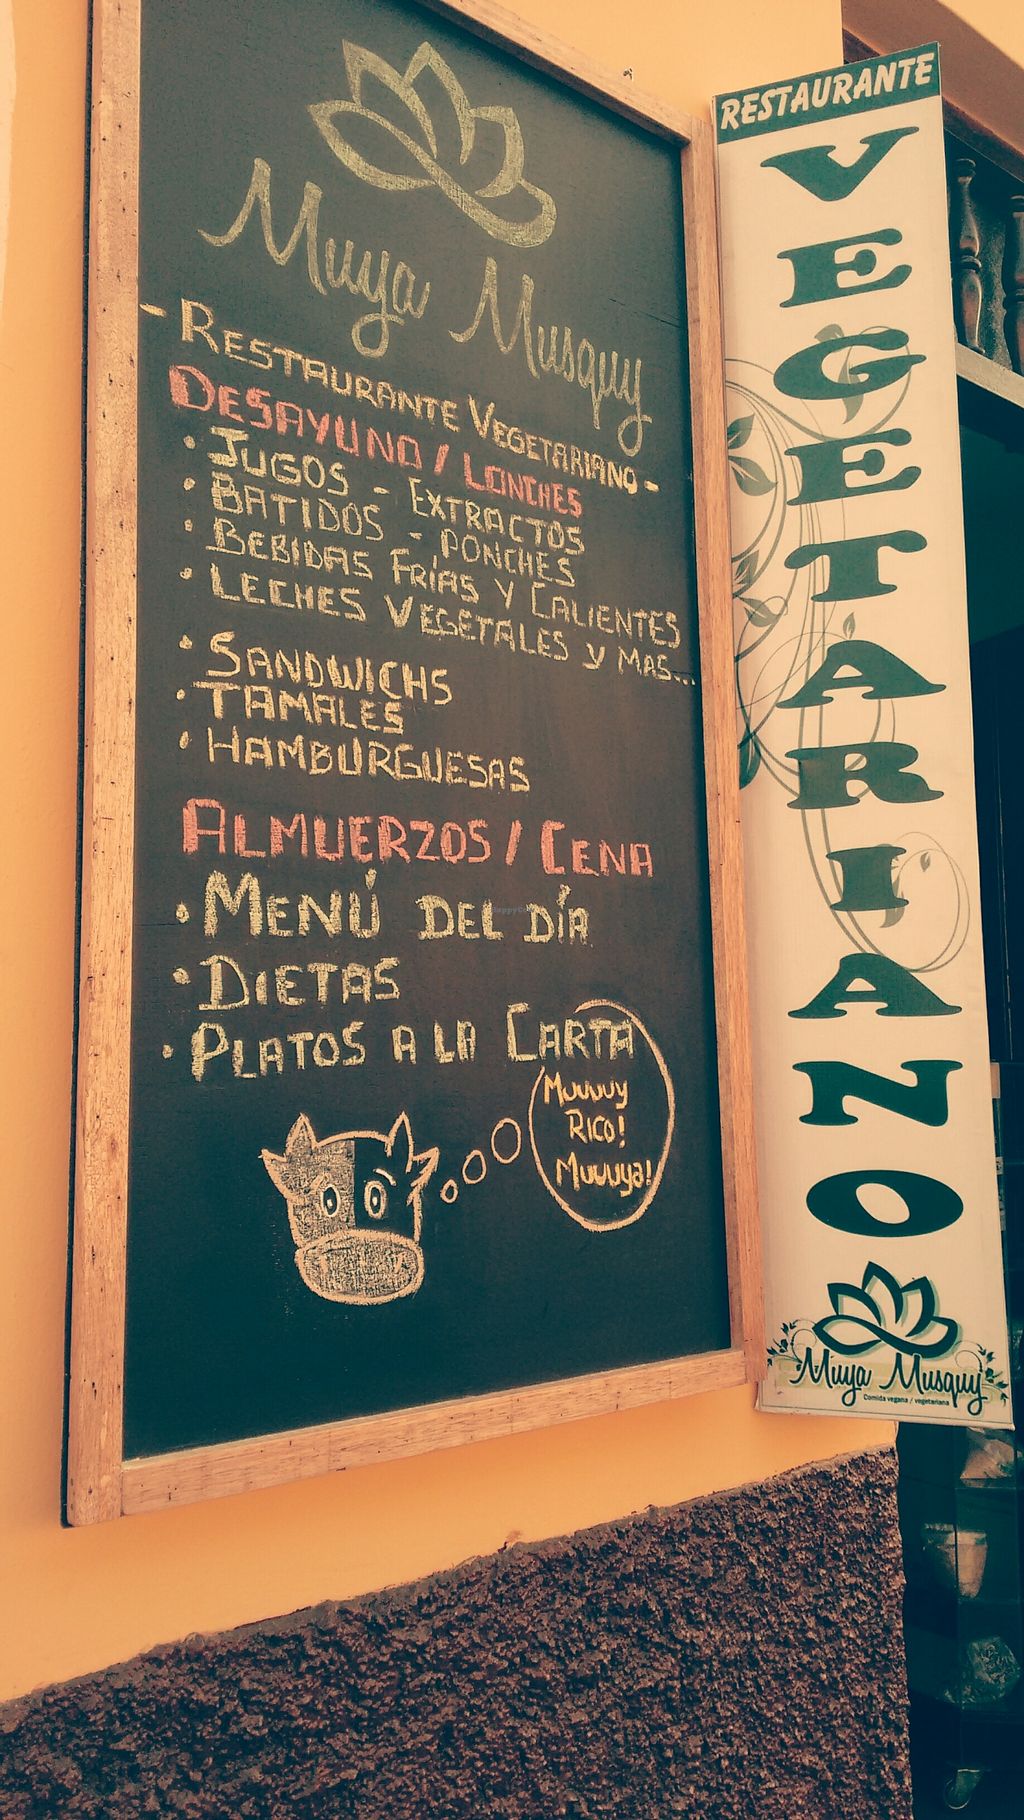 Muya Musquy
- RESTAURANTE VEGETARIANO -
DESAYUNO / LONCHES
• JUGOS - EXTRACTOS
• BATIDOS - PONCHES
• BEBIDAS FRÍAS Y CALIENTES
• LECHES VEGETALES Y MAS...
• SANDWICHS
• TAMALES
• HAMBURGUESAS
ALMUERZOS / CENA
• MENÚ DEL DÍA
• DIETAS
• PLATOS A LA CARTA
Muuuuy
RICO!
Muuuya!
RESTAURANTE
VEGETARIANO
Muya Musquy
Comida vegana / vegetariana